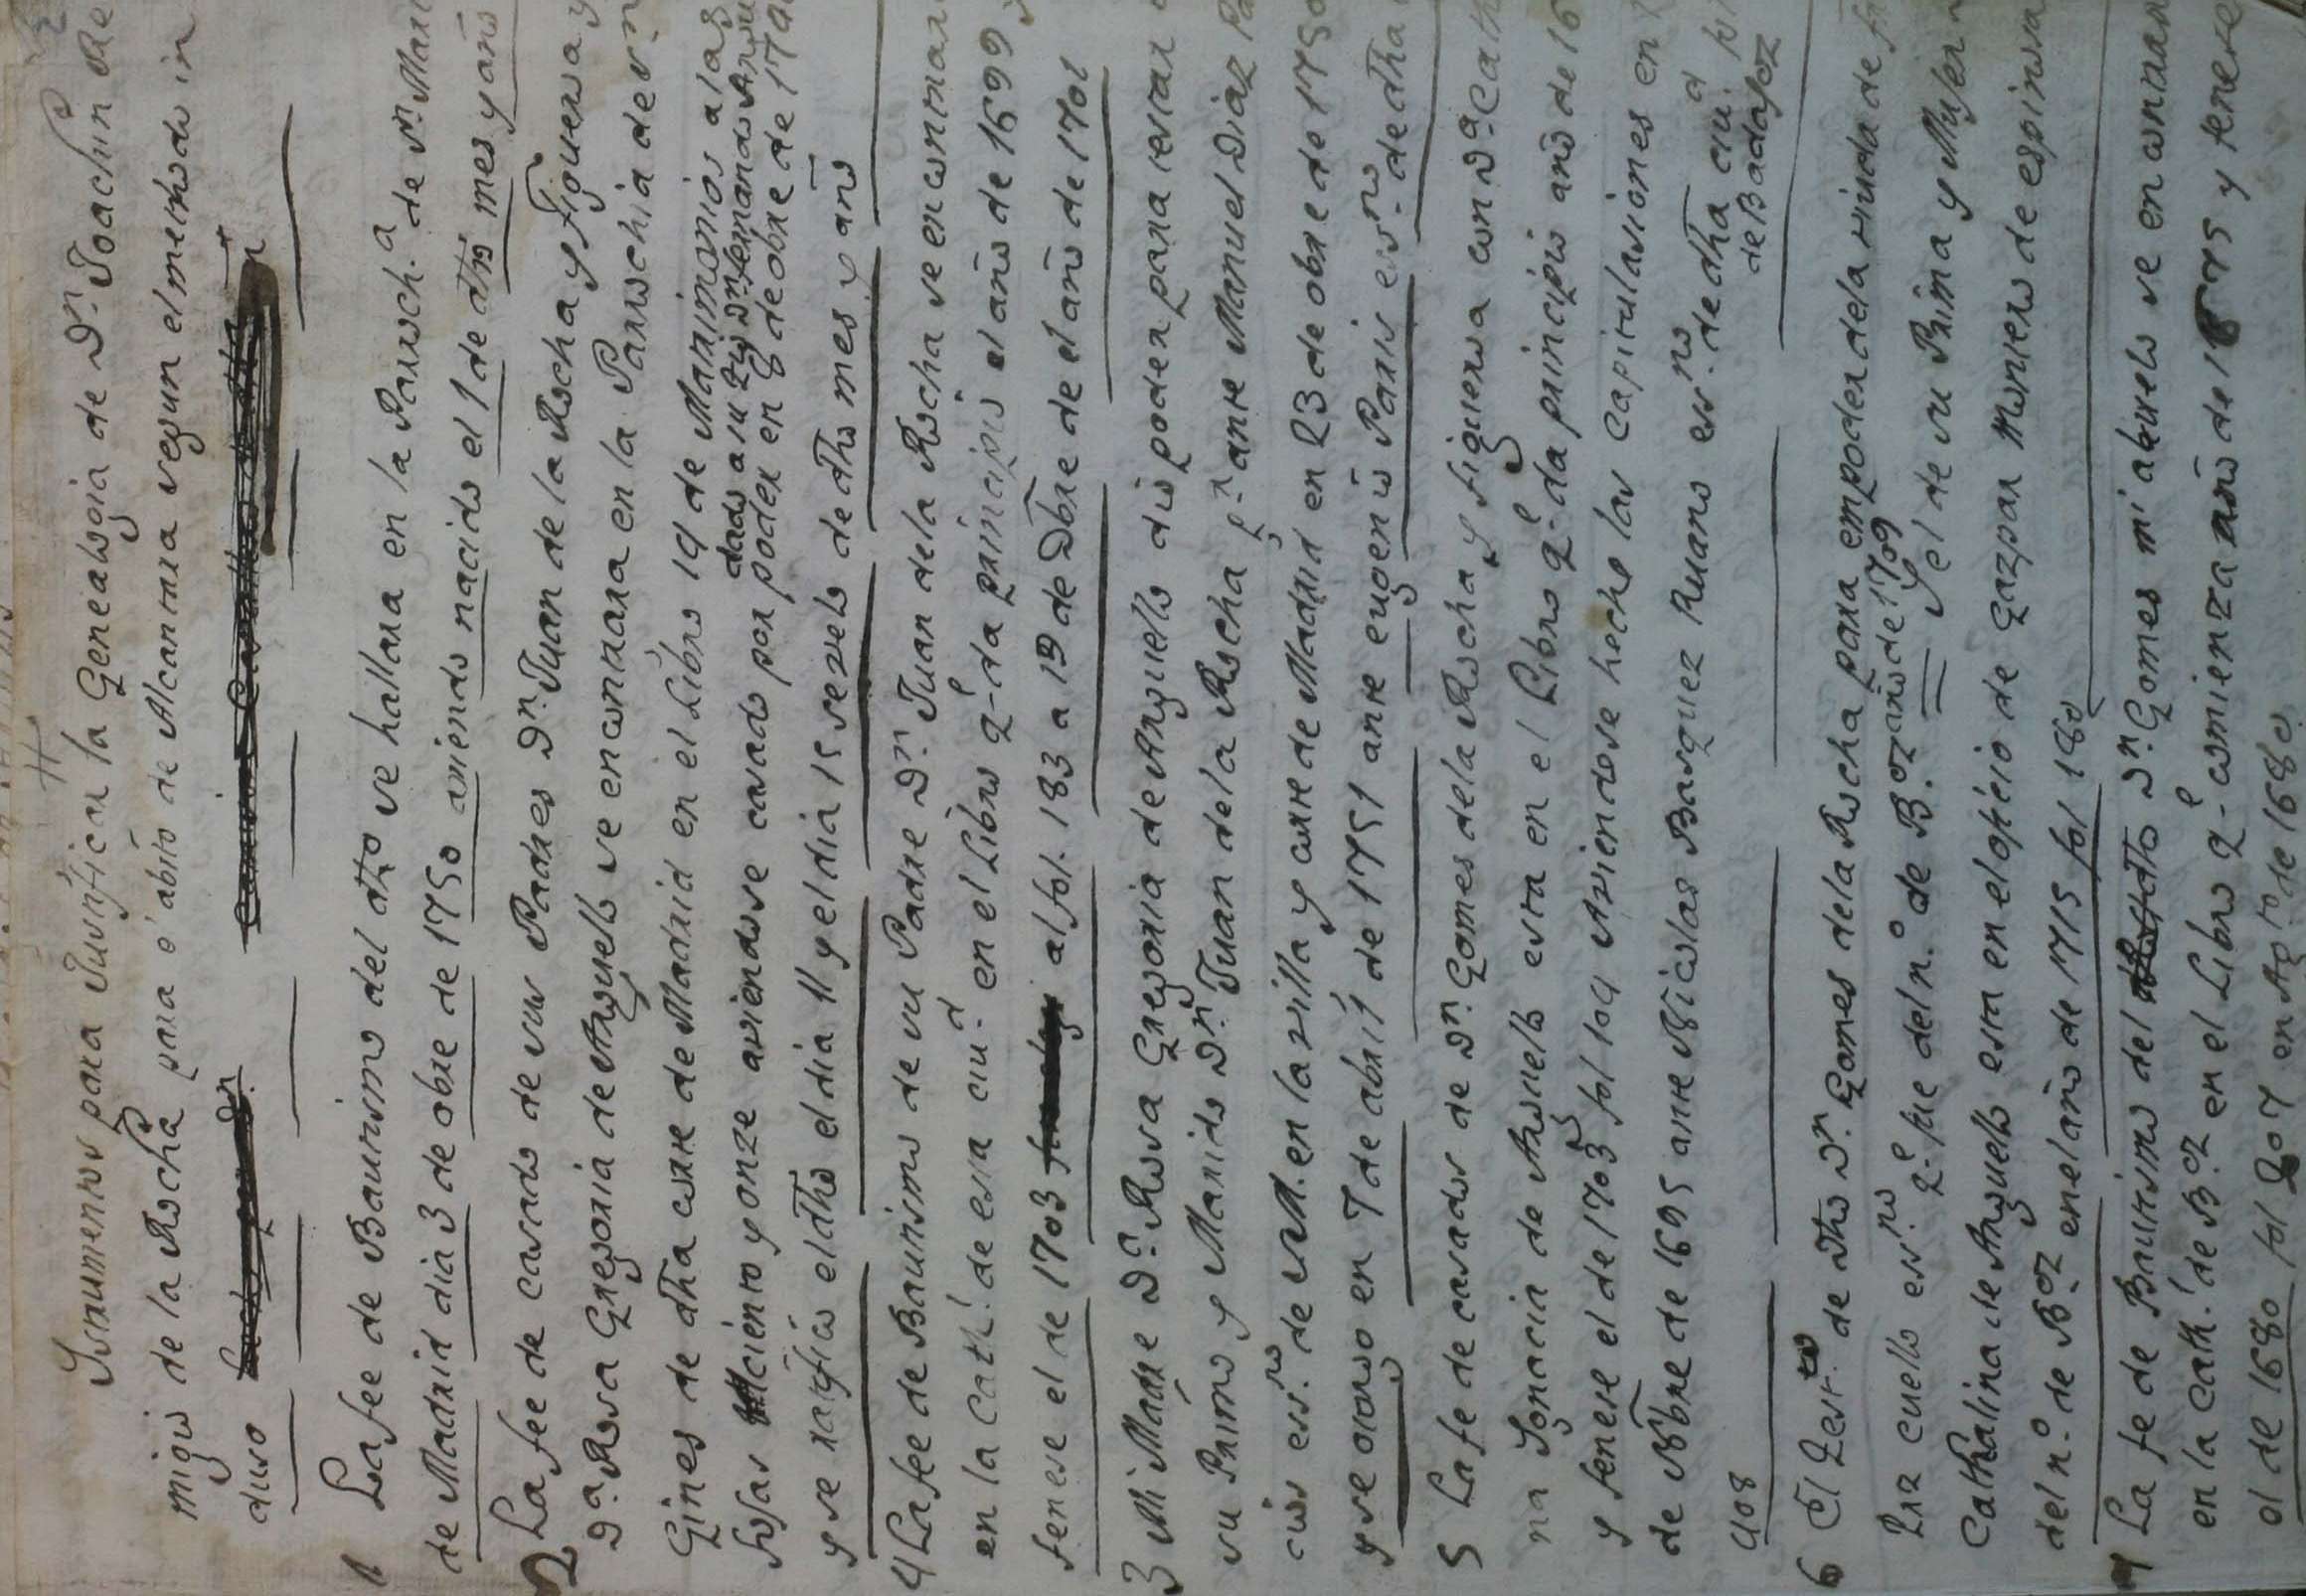 Instrumentos para Justificar la Genealogia de Dn. Joachin de
migio de la Rocha para el abito de Alcantara segun el metodo in
cluso
1 La fee de Bautismo del dho se hallara en la Parroch.a de Sn. Mart
de Madrid dia 3 de obre de 1750 aviendo nacido el 1 de dho mes y año
2 La fee de casado de sus Padres Dn. Juan de la Rocha y Figueroa y
Da. Rosa Gregoria de Arguello se encontrara en la Parrochia de Sn
Gines de dha corte de Madrid en el Libro 19 de Matrimonios a las
dado a su tio Dn. Fernando Argue
fojas ciento y onze aviendose casado por poder en 8 de obre de 174
y se ratifico el dho el dia 11 y el dia 15 se velo de dho mes y año
4 La fee de Bautismo de su Padre Dn. Juan de la Rocha se encontrar
en la Cath.l de esta ciu.d en el Libro q.e da principio el año de 1699 y
fenese el de 1703 al fol. 183 a 19 de Dbre de el año de 1701
3 Mi Madre Da. Rosa Gregoria de Arguello dio poder para testar
su Primo y Marido Dn. Juan de la Rocha p.r ante Manuel Diaz Pa
cios ess.no de S.M. en la villa y corte de Madrid en 23 de obre de 1750
y se otorgo en 7 de abril de 1751 ante eugenio Paris ess.no de dha
5 La fe de casados de Dn. Gomes de la Rocha y figueroa con Da. Cath
na Ignacia de Arguello esta en el Libro q.e da principio año de 16
y fenese el de 1703 fol 109 Aviendose hecho las capitulasiones en
de Nbre de 1695 ante Nicolas Basquez Ruano ess.no de dha ciu.d
de Badajoz
6 El Test.to de dho Dn. Gomes de la Rocha para em poder de la viuda de
tra cuello ess.no q.e fue del n.o de B.oz año de 1709 = Y el de su Prima y Muger
Cathalina de Arguello esta en el oficio de Gazpar Montero de espinosa
del n.o de B.oz en el año de 1715 fol 180
7 La fe de Bautismo del Dn. Gomes mi abuelo se encontrar
en la Cath.l de B.oz en el Libro q.e comienza año de 1675 y fenese
el de 1680 fol 207 en Ag.to de 1680